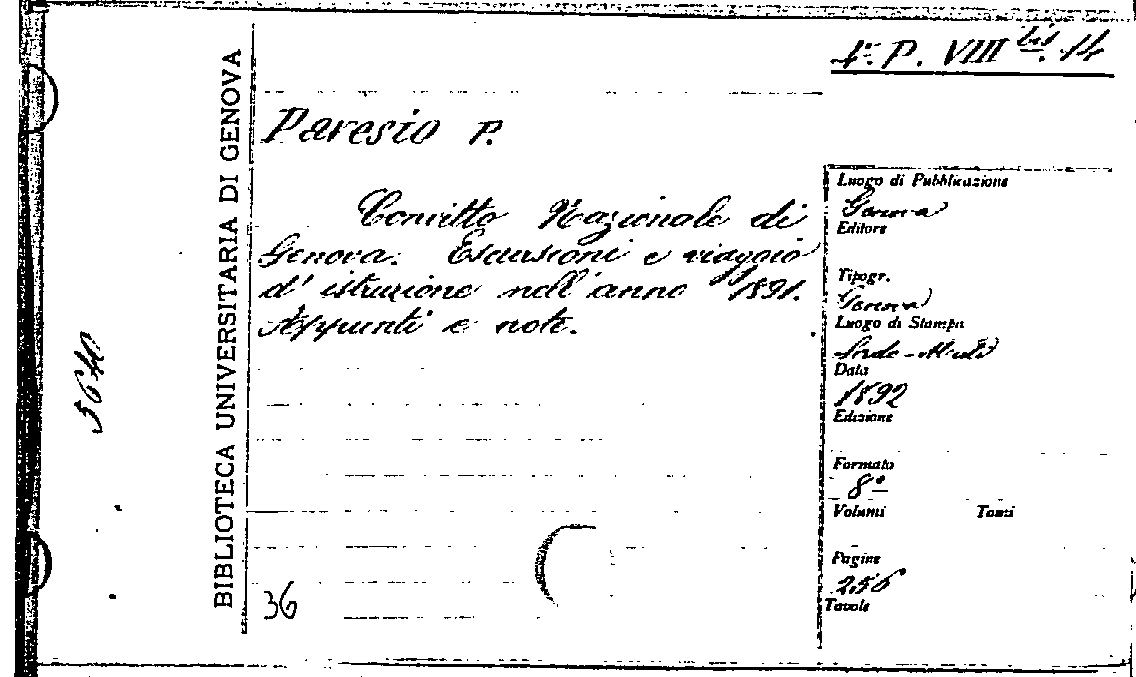 4ª. P. VIII bis. 14
BIBLIOTECA UNIVERSITARIA DI GENOVA
5640
Paresio P.
Convitto Nazionale di
Genova. Escursioni e viaggio
d'istruzione nell'anno 1891.
Appunti e note.
36
Luogo di Pubblicazione
Genova
Editore
Tipogr.
Genova
Luogo di Stampa
Sordo-Muti
Data
1892
Edizione
Formato
8º
Volumi Tomi
Pagine
256
Tavole